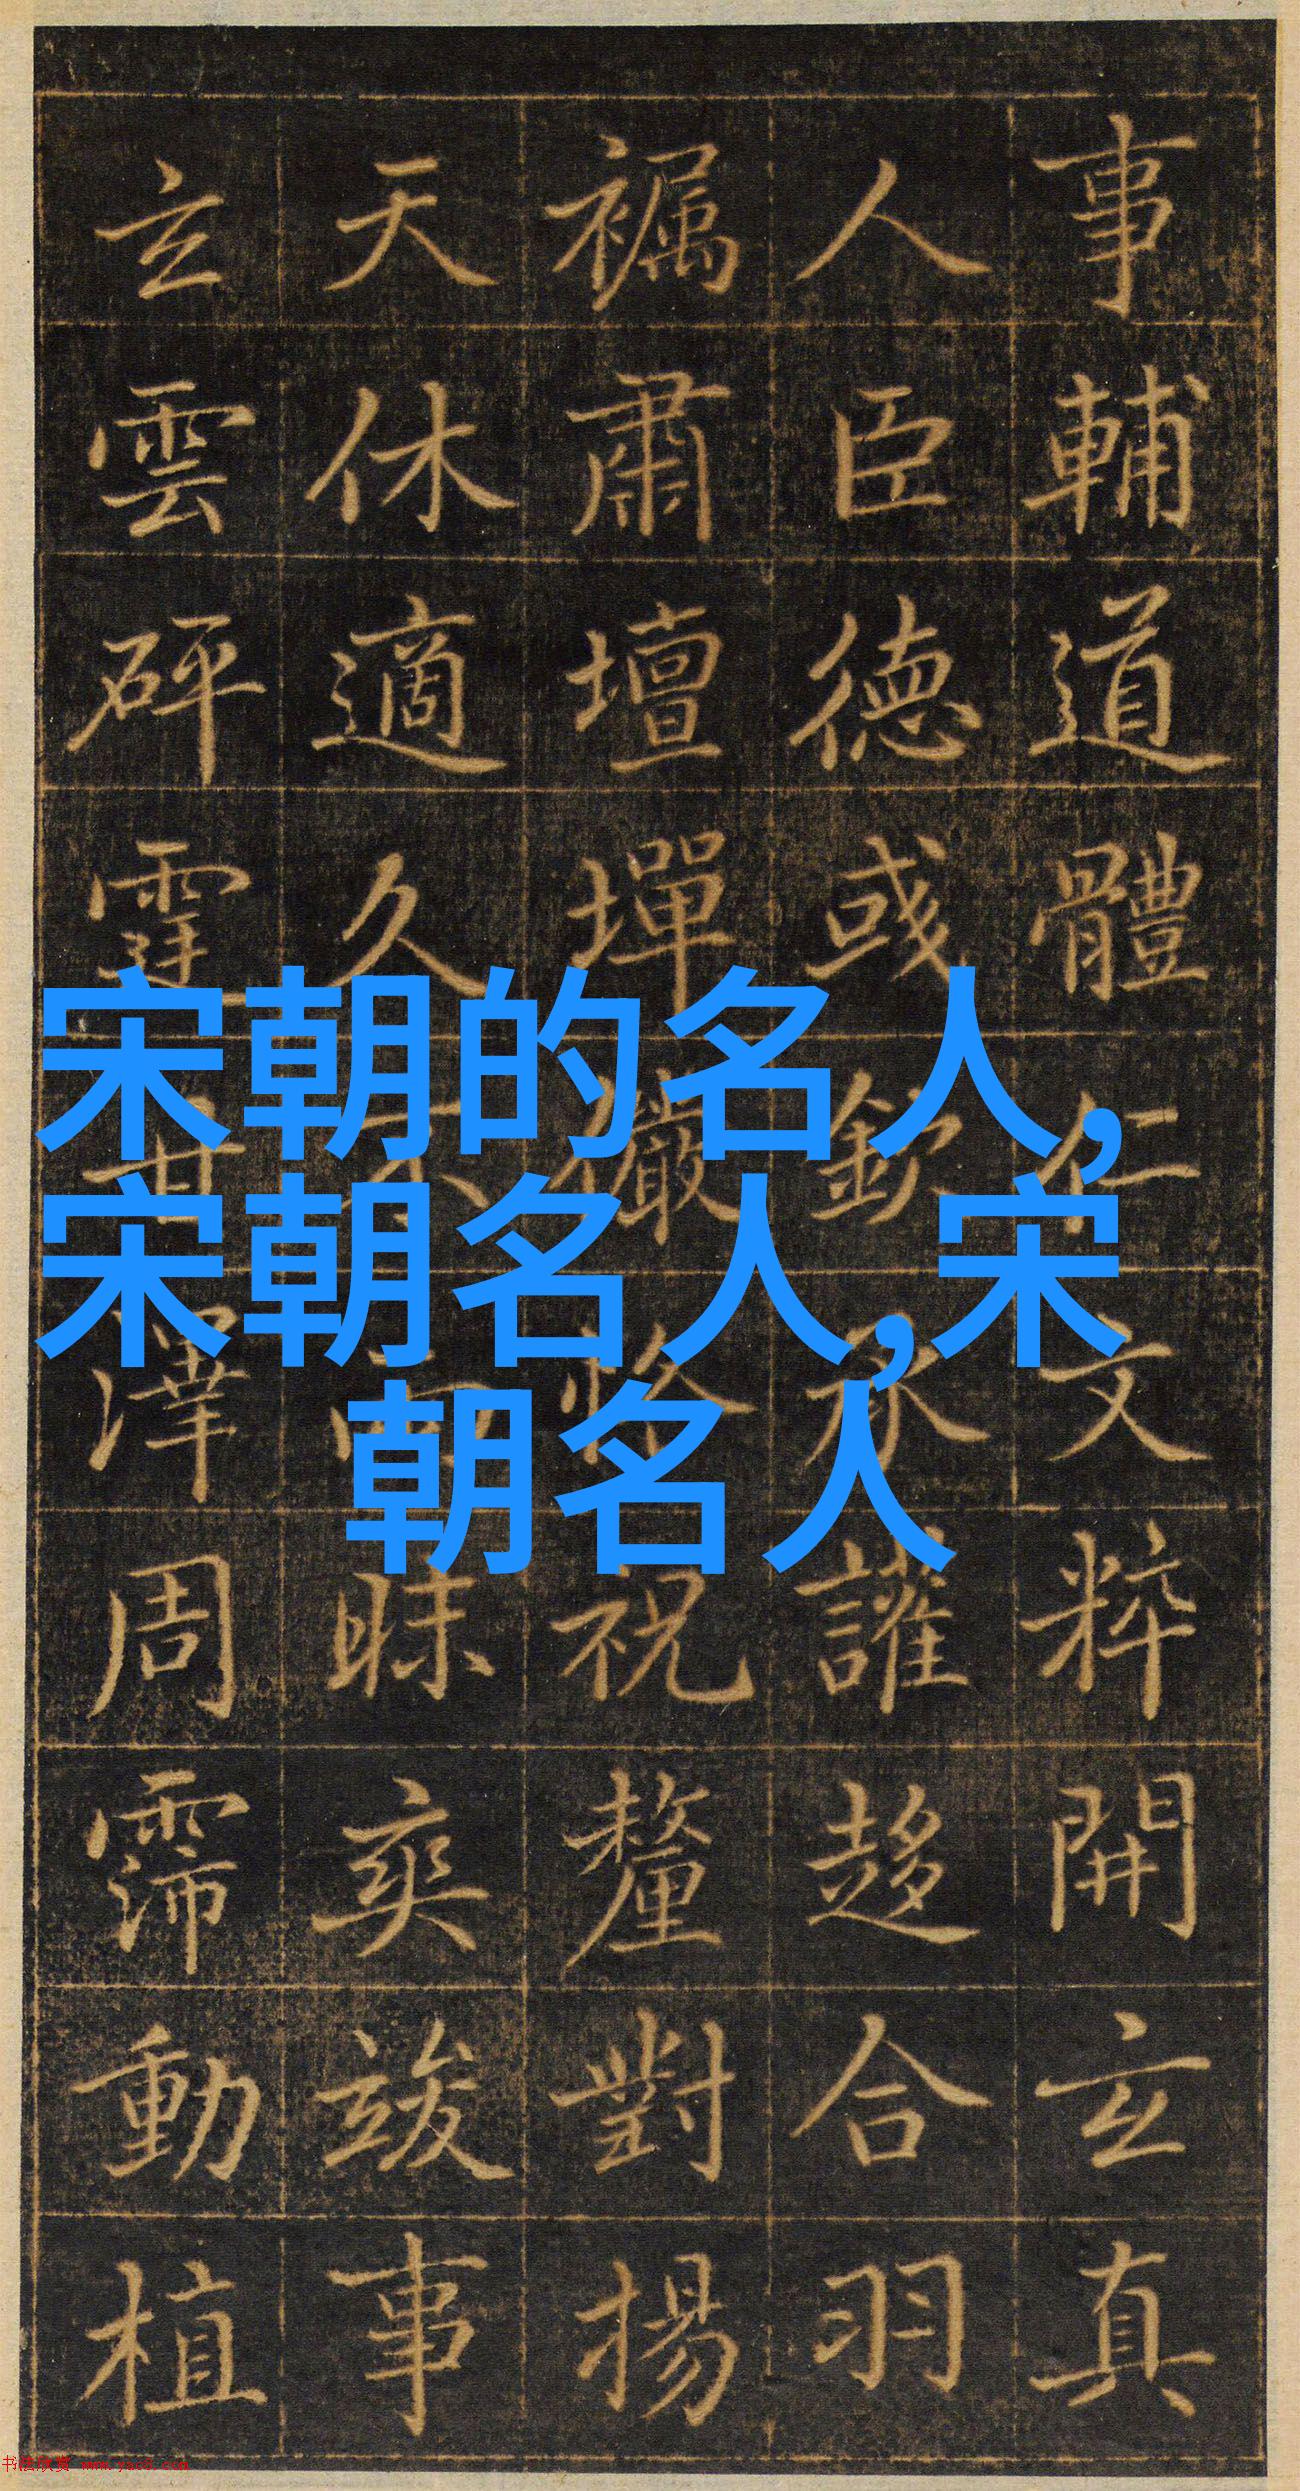 宋朝的名人,
宋朝名人,宋
朝名人
事輔道體仁文粹開玄真
人臣德或欽承讙趍合羽
肅壇墠儼恪祝釐對揚
天休適久眛爽竣事
玄雲砰霆甘澤周霈動植
书法欣赏 www.yac8.com